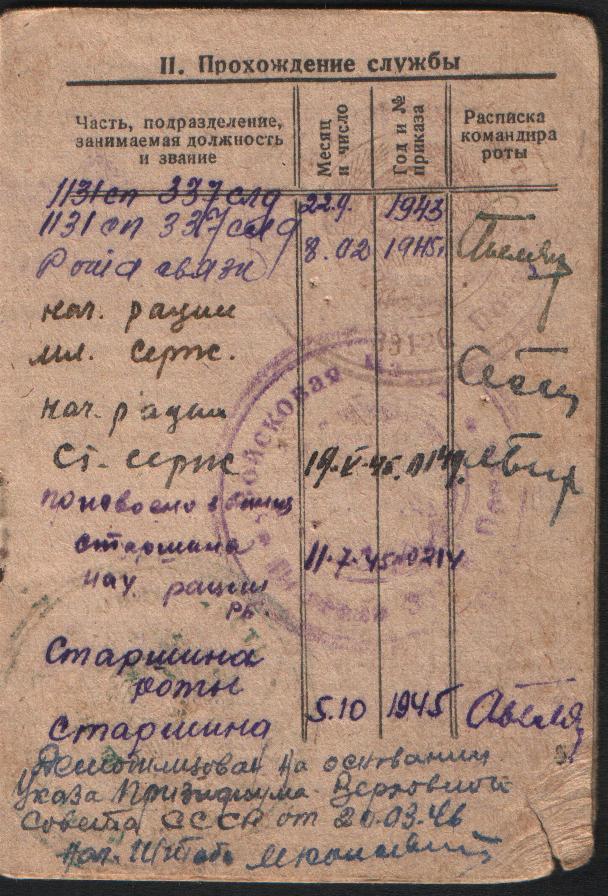 II. Прохождение службы
Часть, подразделение, занимаемая должность и звание
Месяц и число
Год и № приказа
Расписка командира роты
1131 сп 337 слд 22.9. 1943
1131 сп 337 слд
Рота связи 8.02 1945г
нач. рации
мл. серж.
нач. рации
Ст. серж 19.V.45. 
присвоено
старшина 11.7.45 0214
нач рации
Старшина
роты
старшина 5.10 1945
Демобилизован на основании
Указа Призидиума Верховного
Совета СССР от 20.03.46
Нач. Штаба
Войсковая